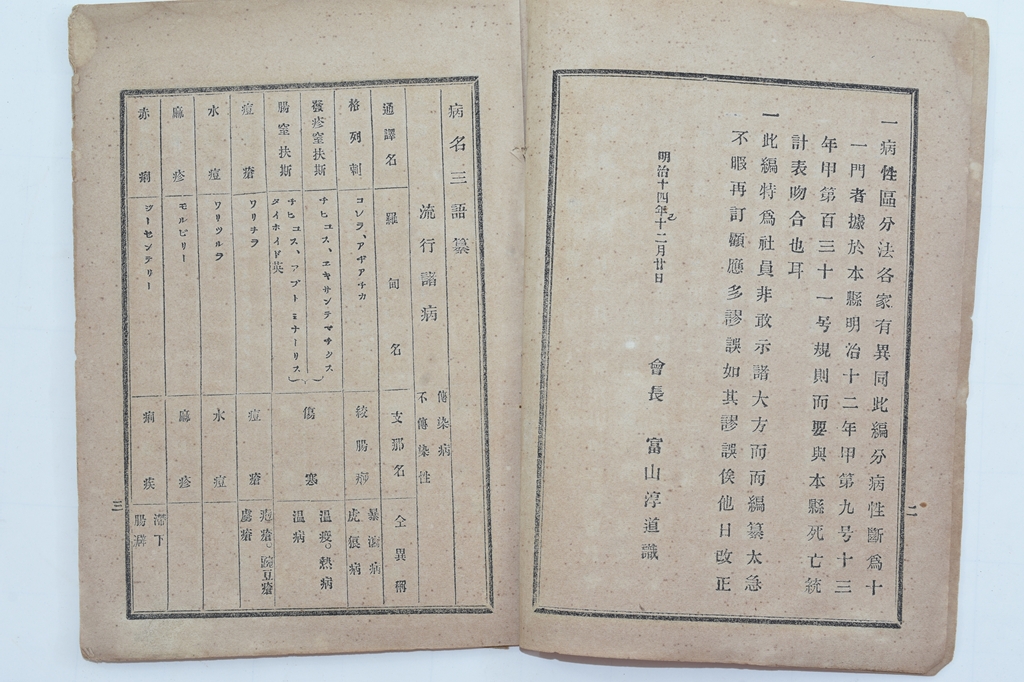 一病性區分法各家有異同此編分病性斷爲十
一門者據於本縣明治十二年甲第九号十三
年甲第百三十一号規則而要與本縣死亡統
計表吻合也耳
一此編特爲社員非敢示諸大方而而編纂太急
不暇再訂顧應多謬誤如其謬誤俟他日改正
明治十四年十二月廿日
會長 富山淳道識
二
病名三語纂
流行諸病 傳染病 不傳染性
通譯名 羅甸名 支那名 仝異稱
格列刺 コレラ、アヂアチカ 絞腸痧 暴瀉病 虎狼病
發疹窒扶斯 チヒュス、エキサンテマチシス 傷寒 溫疫。熱病
腸窒扶斯 チヒュス、アブトミナーリス タイホイド英 溫病
痘瘡 ワリヲラ 痘瘡 疱瘡。豌豆瘡 虜瘡
水痘 ワリツルラ 水痘
麻疹 モルビリー 麻疹
赤痢 ヅーセンテリー 痢疾 滯下 腸澼
三